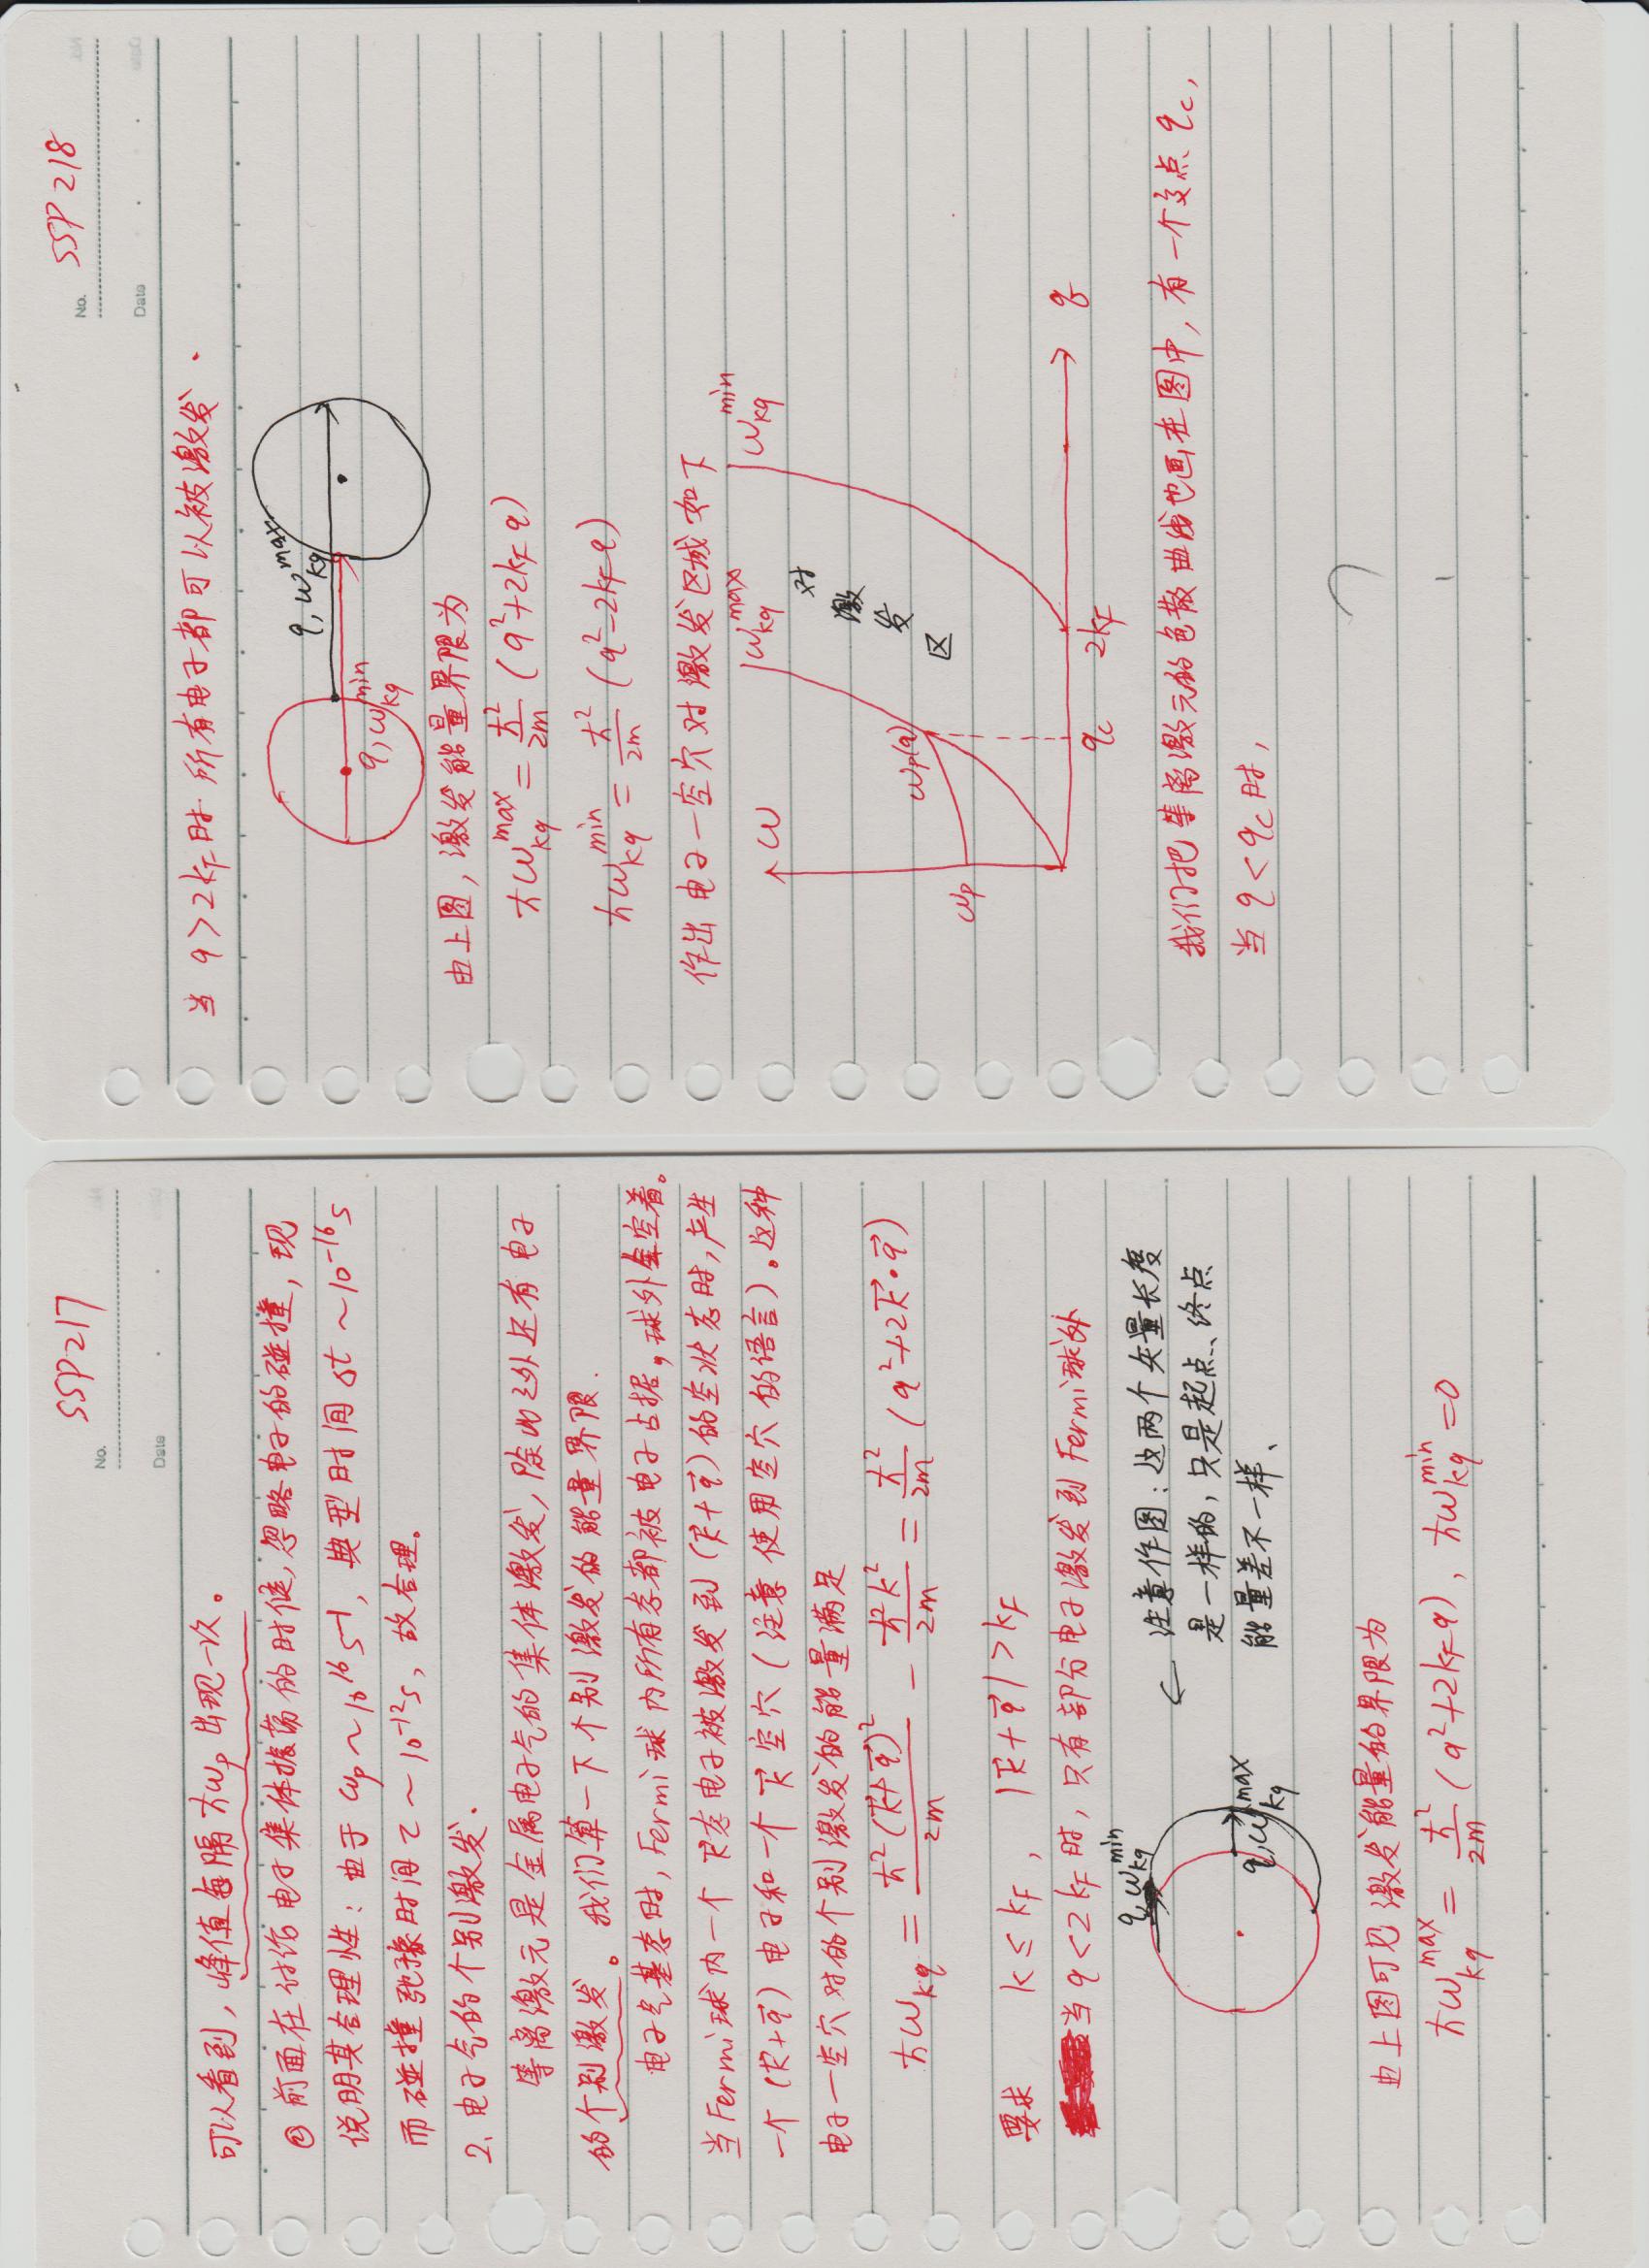 SSP217
No.
Date
可以看到，峰值每隔ħωp出现一次。
② 前面在讨论电子集体振荡的时候，忽略电子的碰撞，现
说明其合理性：由于 ωp ~ 10^16 s^-1，典型时间 Δt ~ 10^-16 s
而碰撞弛豫时间 τ ~ 10^-12 s，故合理。
2、电子气的个别激发.
等离激元是金属电子气的集体激发，除此之外还有电子
的个别激发。我们算一下个别激发的能量界限.
电子气基态时，Fermi球内所有态都被电子占据，球外全空着。
当Fermi球内一个 k⃗态电子被激发到(k⃗+q⃗)的空状态时，产生
一个(k⃗+q⃗)电子和一个 k⃗ 空穴(注意使用空穴的语言)。这种
电子一空穴对的个别激发的能量满足
ħω_kq = ħ²(k⃗+q⃗)²/2m − ħ²k²/2m = ħ²/2m (q²+2k⃗•q⃗)
要求 k ≤ k_F , |k⃗+q⃗| > k_F
当 q < 2k_F 时，只有部分电子激发到 Fermi球外
q, ω_kq^min
← 注意作图：这两个矢量长度
是一样的，只是起点、终点
q, ω_kq^max
能量差不一样、
由上图可见 激发能量的界限为
ħω_kq^max = ħ²/2m (q²+2k_F q), ħω_kq^min = 0
SSP 218
No.
Date
当 q > 2k_F 时 所有电子都可以被激发.
q, ω_kq^max
q, ω_kq^min
由上图，激发能量界限为
ħω_kq^max = ħ²/2m (q²+2k_F q)
ħω_kq^min = ħ²/2m (q²−2k_F q)
作出电子一空穴对激发区域如下
ω
ω_kq^max
ω_kq^min
对
激
发
区
ωp(q)
ωp
q_c
2k_F
q
我们把等离激元的色散曲线也画在图中，有一个交点 q_c，
当 q < q_c 时，